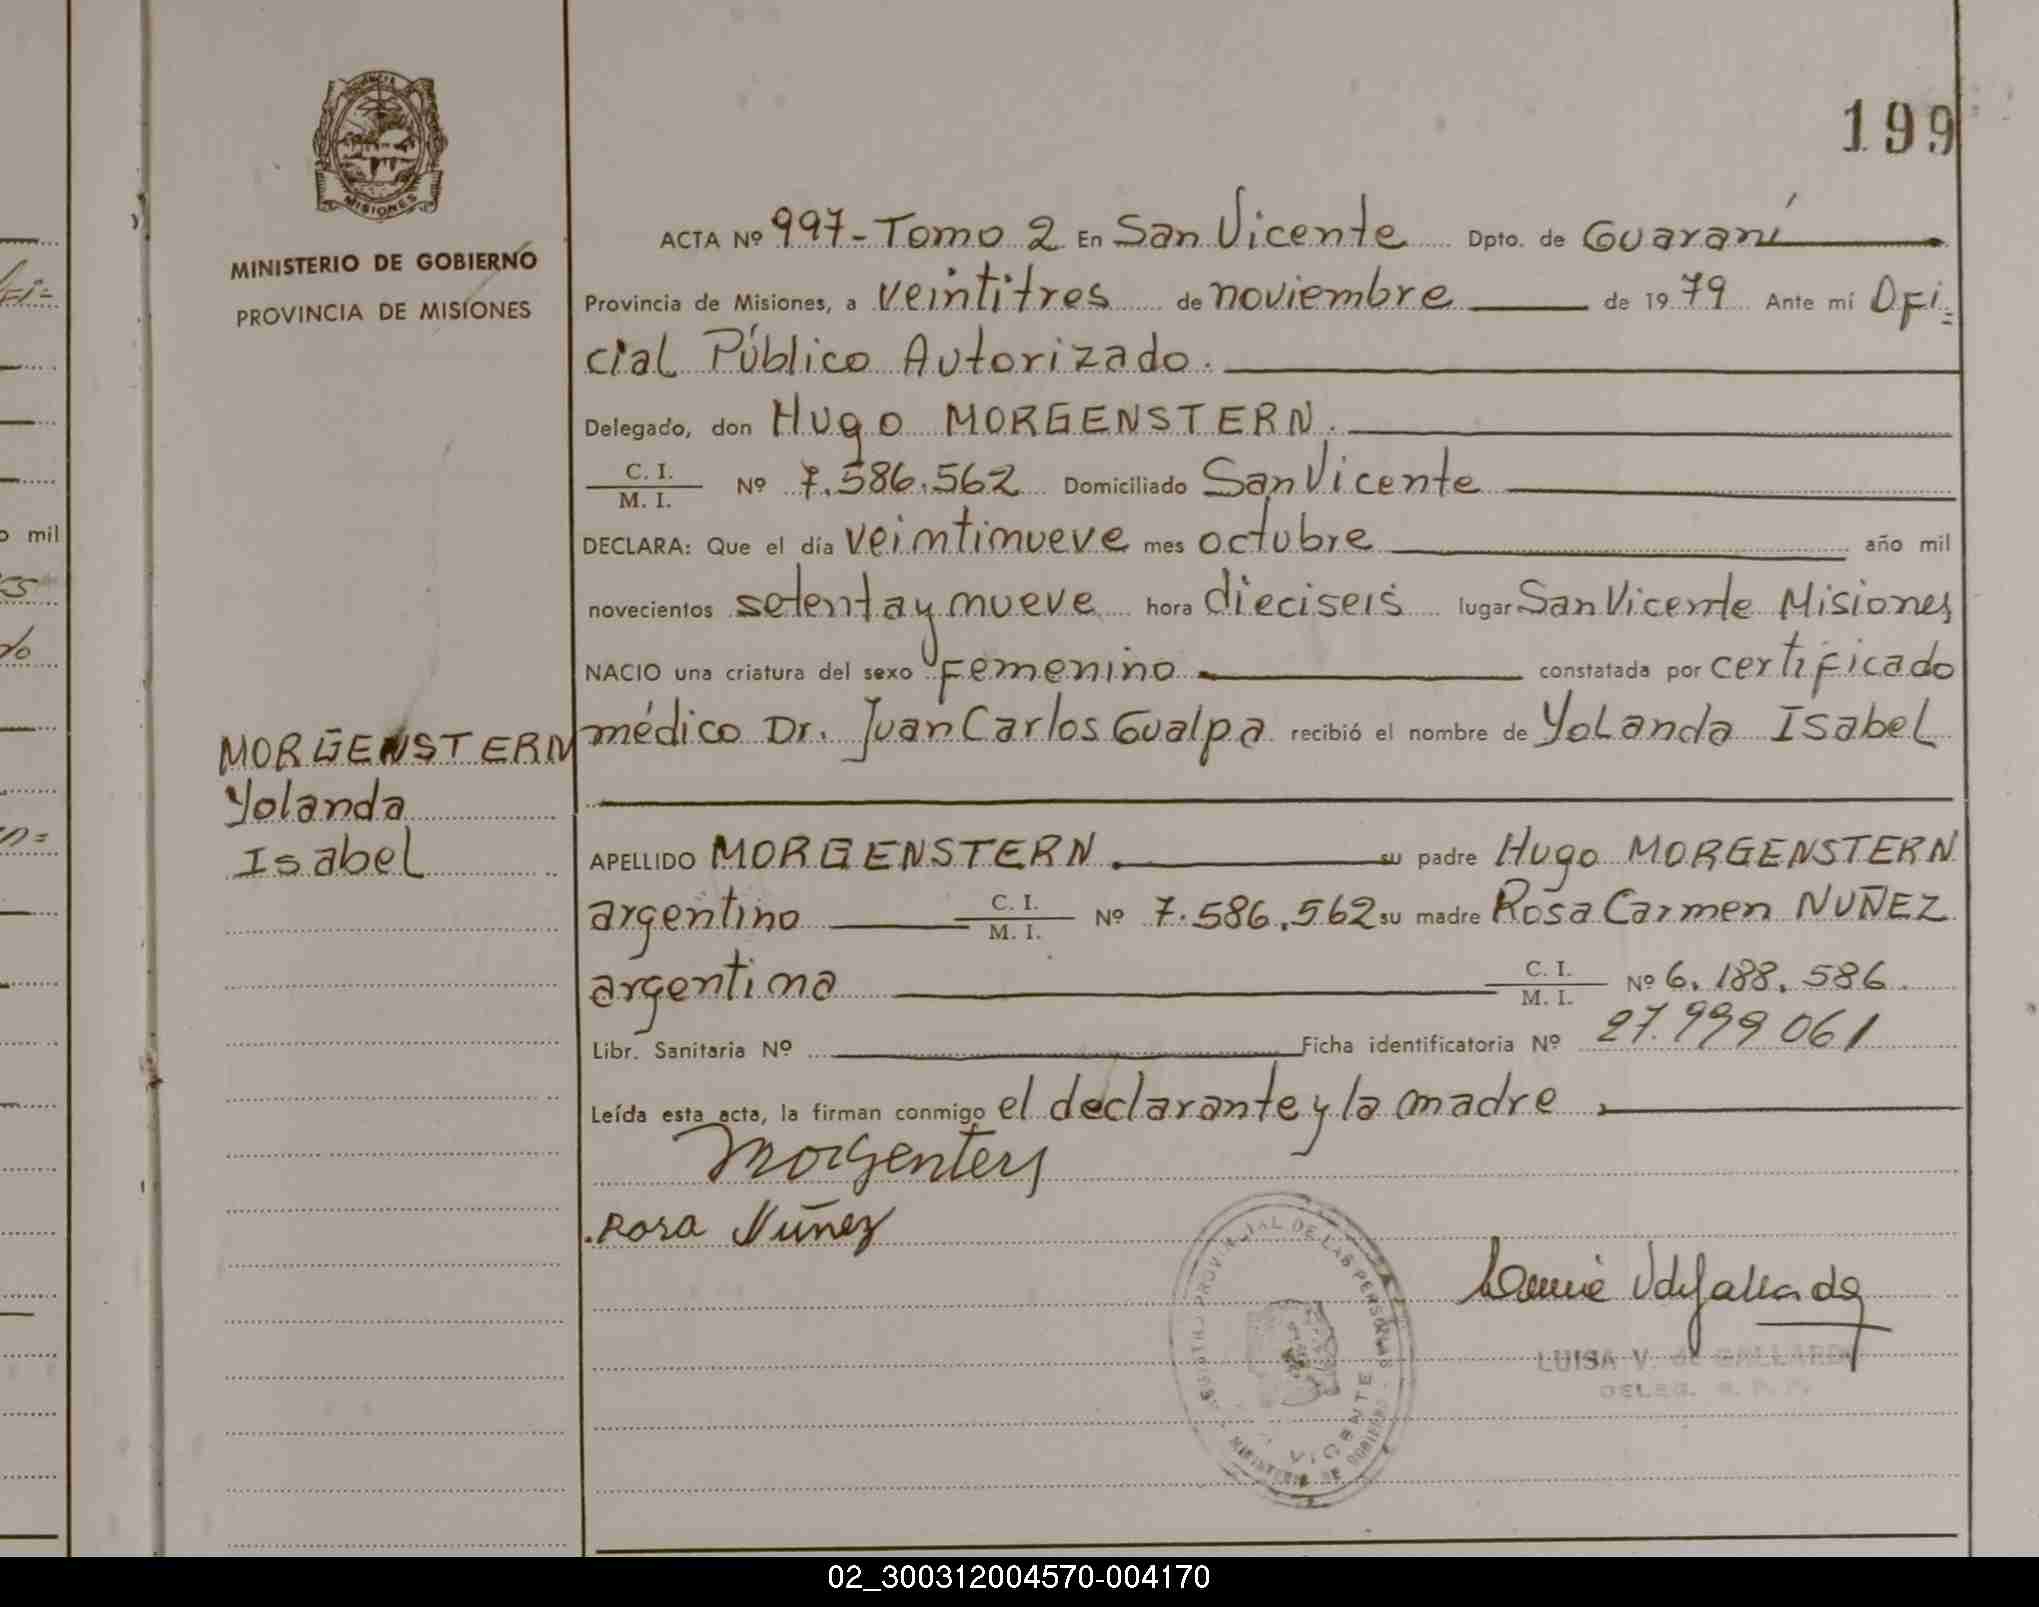 199
MISIONES
MINISTERIO DE GOBIERNO
PROVINCIA DE MISIONES
ACTA Nº 997-Tomo 2 En San Vicente Dpto. de Guaraní
Provincia de Misiones, a veintitres de noviembre de 1979 Ante mí Ofi=
cial Público Autorizado.
Delegado, don Hugo MORGENSTERN.
C. I.
M. I. Nº 7.586.562 Domiciliado San Vicente
DECLARA: Que el día veintinueve mes octubre año mil
novecientos setenta y nueve hora dieciseis lugar San Vicente Misiones
NACIO una criatura del sexo femenino constatada por certificado
médico Dr. Juan Carlos Gualpa recibió el nombre de Yolanda Isabel
MORGENSTERN
Yolanda
Isabel
APELLIDO MORGENSTERN. su padre Hugo MORGENSTERN
argentino C. I.
M. I. Nº 7.586.562 su madre Rosa Carmen NUÑEZ
argentina C. I.
M. I. Nº 6.188.586.
Libr. Sanitaria Nº Ficha identificatoria Nº 27.999061
Leída esta acta, la firman conmigo el declarante y la madre
Morgentern
Rosa Núñez
LUISA V. de GALLARDO
DELEG.
PROVINCIAL DE LAS PERSONAS
VICENTE
MINISTERIO DE GOBIERNO
o mil
02_300312004570-004170